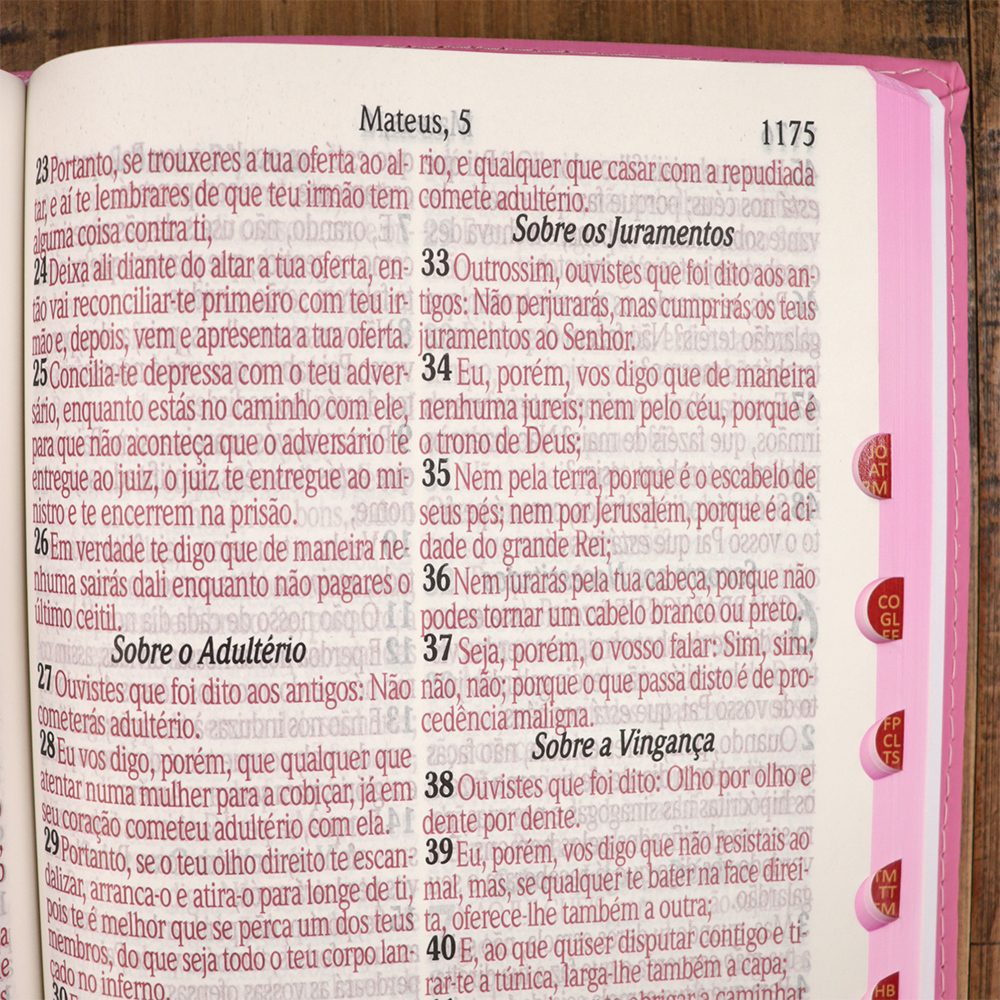 Mateus, 5
1175
23 Portanto, se trouxeres a tua oferta ao al-
tar, e aí te lembrares de que teu irmão tem
alguma coisa contra ti,
24 Deixa ali diante do altar a tua oferta, en-
tão vai reconciliar-te primeiro com teu ir-
mão e, depois, vem e apresenta a tua oferta.
25 Concilia-te depressa com o teu adver-
sário, enquanto estás no caminho com ele,
para que não aconteça que o adversário te
entregue ao juiz, o juiz te entregue ao mi-
nistro e te encerrem na prisão.
26 Em verdade te digo que de maneira ne-
nhuma sairás dali enquanto não pagares o
último ceitil.
Sobre o Adultério
27 Ouvistes que foi dito aos antigos: Não
cometerás adultério.
28 Eu vos digo, porém, que qualquer que
atentar numa mulher para a cobiçar, já em
seu coração cometeu adultério com ela.
29 Portanto, se o teu olho direito te escan-
dalizar, arranca-o e atira-o para longe de ti,
pois te é melhor que se perca um dos teus
membros, do que seja todo o teu corpo lan-
çado no inferno.
30
rio, e qualquer que casar com a repudiada
comete adultério.
Sobre os Juramentos
33 Outrossim, ouvistes que foi dito aos an-
tigos: Não perjurarás, mas cumprirás os teus
juramentos ao Senhor.
34 Eu, porém, vos digo que de maneira
nenhuma jureis; nem pelo céu, porque é
o trono de Deus;
35 Nem pela terra, porque é o escabelo de
seus pés; nem por Jerusalém, porque é a ci-
dade do grande Rei;
36 Nem jurarás pela tua cabeça, porque não
podes tornar um cabelo branco ou preto.
37 Seja, porém, o vosso falar: Sim, sim;
não, não; porque o que passa disto é de pro-
cedência maligna.
Sobre a Vingança
38 Ouvistes que foi dito: Olho por olho e
dente por dente.
39 Eu, porém, vos digo que não resistais ao
mal, mas, se qualquer te bater na face direi-
ta, oferece-lhe também a outra;
40 E, ao que quiser disputar contigo e ti-
rar-te a túnica, larga-lhe também a capa;
obrigar a caminhar
JO
AT
RM
CO
GL
EF
FP
CL
TS
TM
TT
FM
HB